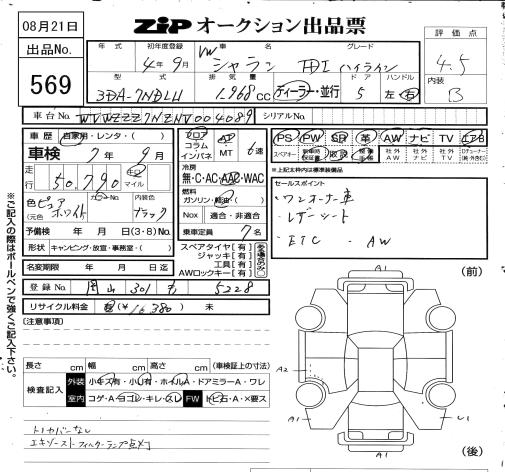 08月21日
ZIP オークション出品票
出品No.
569
年式
初年度登録
車名
グレード
ドア
ハンドル
4年9月
VW シャラン TDI ハイライン
型式
排気量
3DA-7NDLU
1,968cc
ディーラー・並行
5
左・右
評価点
4.5
内装
B
車台No. WVWZZZ7NZNV004089
シリアルNo.
車歴 自家用・レンタ・( )
車検 7年9月
走行 50,790 キロ マイル
色 ピュアホワイト
(元色
カラーNo.
内装色 ブラック
予備検 年 月(3・8)No.
形状 キャンピング・放宣・事務室・( )
名変期限 年 月 日迄
登録No. 岡山 301 5228
リサイクル料金 (¥16,380) 未
フロア
コラム
インパネ
AT
MT
6速
冷房
無・C・AC・AAC・WAC
燃料
ガソリン・軽油・( )
Nox 適合・非適合
乗車定員 7名
スペアタイヤ[有]
ジャッキ[有]
工具[有]
AWロックキー[有]
ある場合のみ○
PS PW SR 革 AW ナビ TV エアB
スペアキー
取説
社外AW
社外ナビ
社外TV
※上記枠内は標準装備品
セールスポイント
・ワンオーナー車
・レザーシート
・ETC ・AW
(注意事項)
長さ cm 幅 cm 高さ cm (車検証上の寸法)
検査記入
外装 小キズ有・小凹有・ホイルA・ドアミラーA・ワレ
室内 コゲ・A・ヨゴレ・キレ・スレ FW トビ石・A・×要ス
トノカバーなし
エキゾーストフィルターランプ点灯
※ご記入の際はボールペンで強くご記入下さい。
(前)
A1
A2
A1
U1
A1
(後)